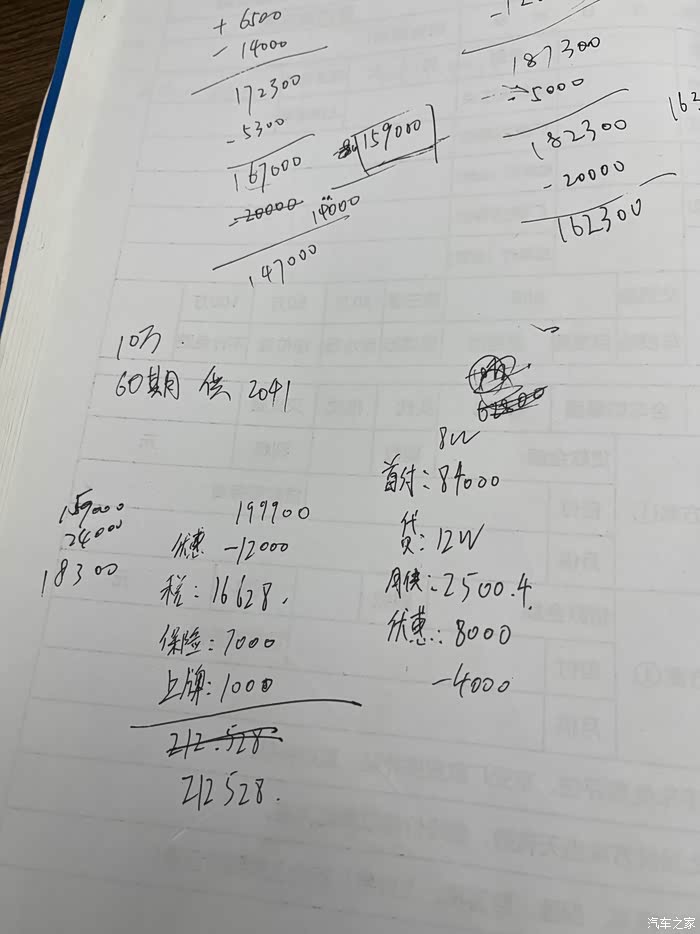 + 6500
- 14000
172300
- 5300
167000
159000
- 20000
14000
147000
187300
- 5000
182300
- 20000
162300
10万
60期 供 2041
159000
24000
18300
199900
优惠 -12000
税: 16628.
保险: 7000
上牌: 1000
212.528
212528.
8W
首付: 84000
贷: 12W
月供: 2500.4.
优惠: 8000
-4000
汽车之家